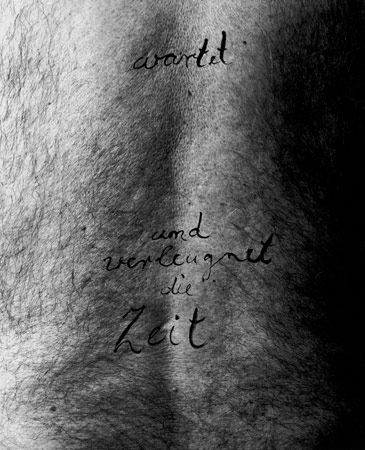 wartet
und
verleugnet
die
Zeit